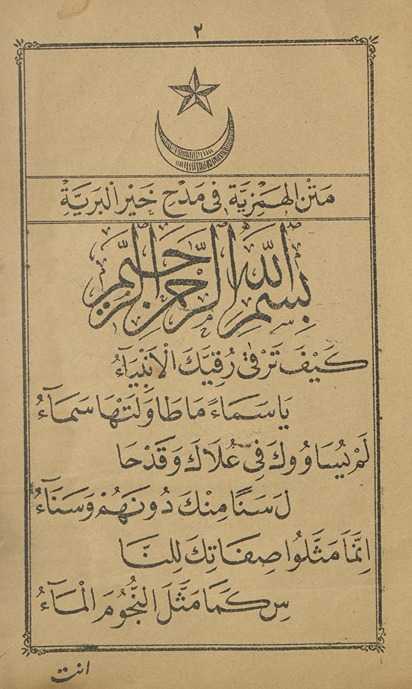 ٢
متن الهمزية في مدح خير البرية
بسم الله الرحمن الرحيم
كَيْفَ تَرْقٰى رُقِيَّكَ الْاَنْبِيَآءُ
يَا سَمَاءً مَاطَاوَلَتْهَا سَمَآءُ
لَمْ يُسَاوُوكَ فِى عُلَاكَ وَقَدْحَا
لَ سَنًا مِنْكَ دُونَهُمْ وَسَنَآءُ
اِنَّمَا مَثَّلُوا صِفَاتِكَ لِلنَّا
سِ كَمَا مَثَّلَ النُّجُومَ الْمَآءُ
انت